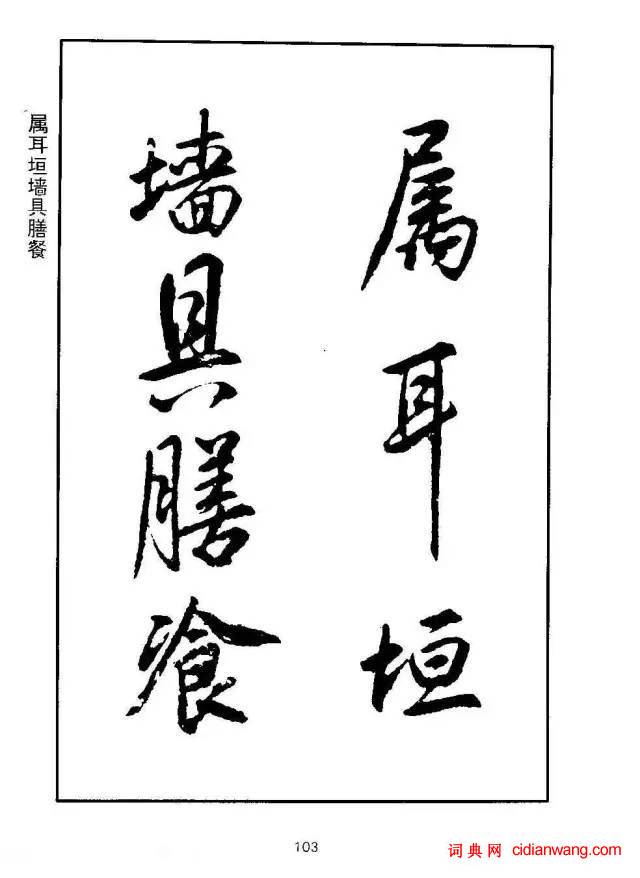 属耳垣
墙具膳飡
属耳垣墙具膳餐
103
词典网 cidianwang.com